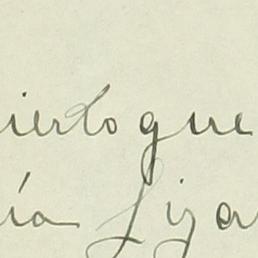 ierto que
ía Liza